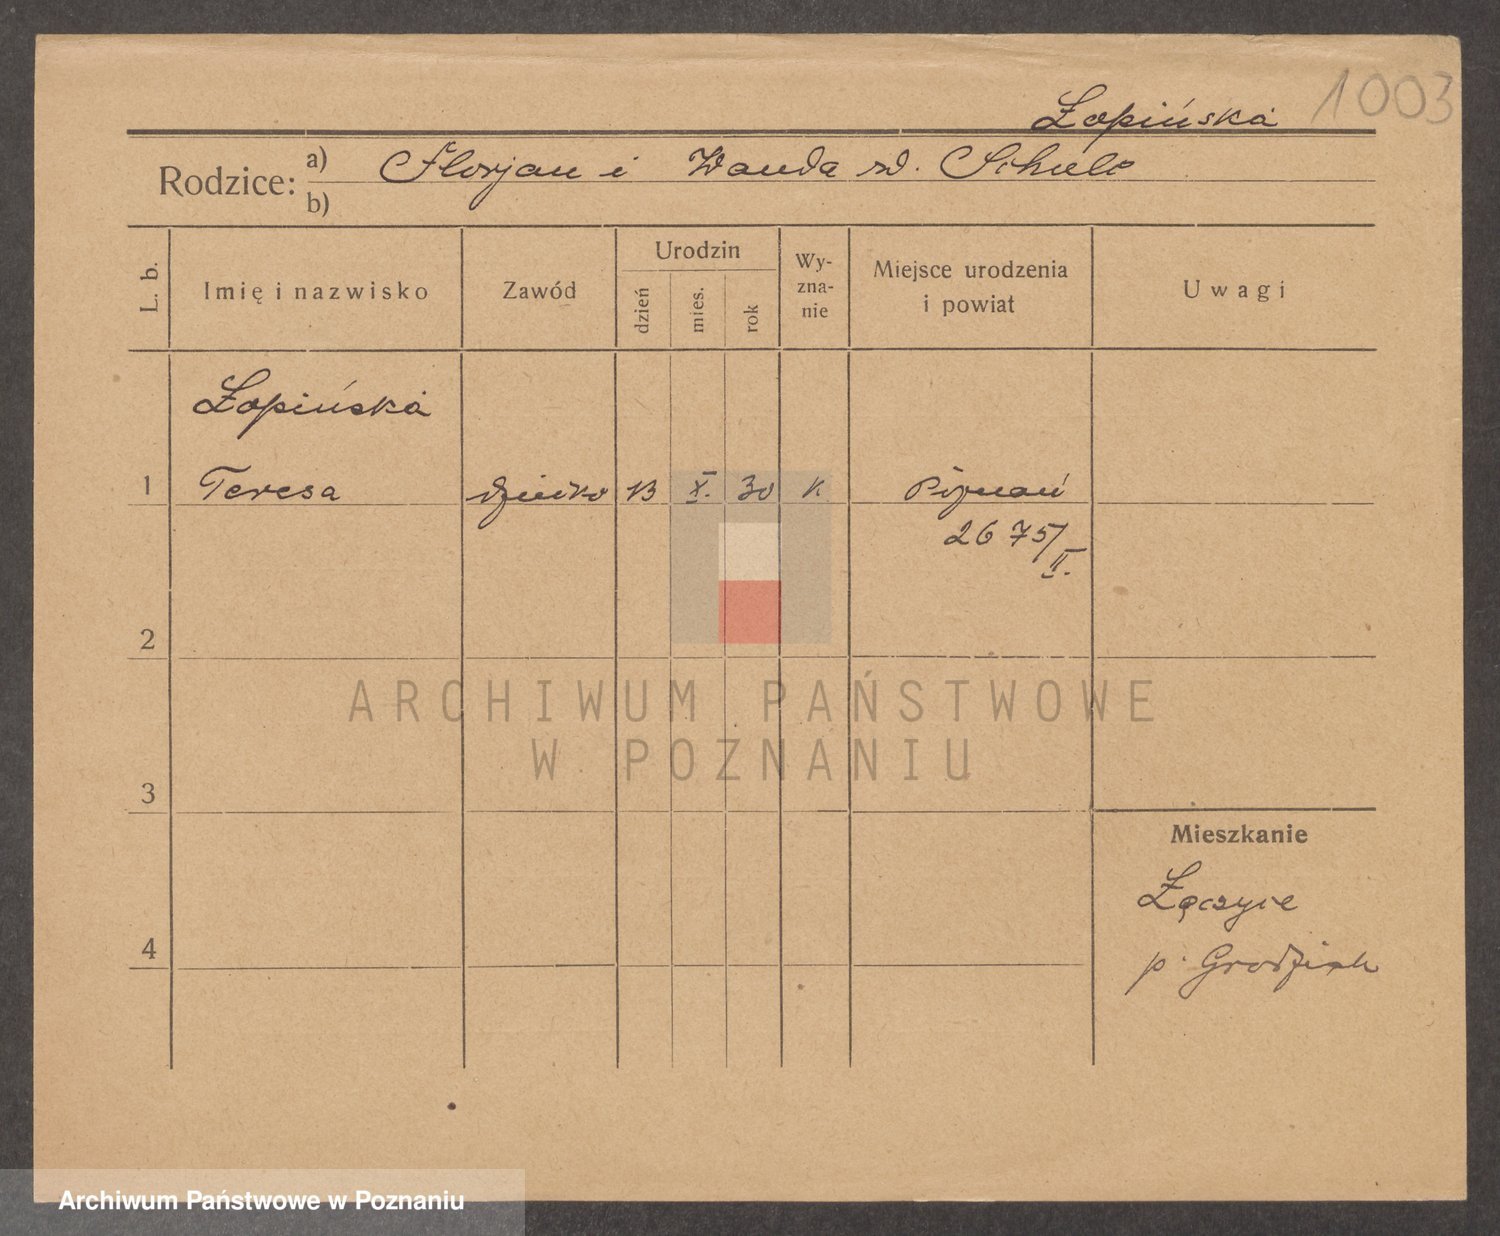 1003
Łopińska
Rodzice: a) Florjan i Wanda zd. Schulc
b)
L. b. Imię i nazwisko Zawód Urodzin dzień mies. rok Wyznanie Miejsce urodzenia i powiat Uwagi
Łopińska
1 Teresa dziecko 13 X. 30 k Poznań
2675/II.
2
ARCHIWUM PAŃSTWOWE
W POZNANIU
3
Mieszkanie
Łęczyce
4
p. Grodzisk
Archiwum Państwowe w Poznaniu